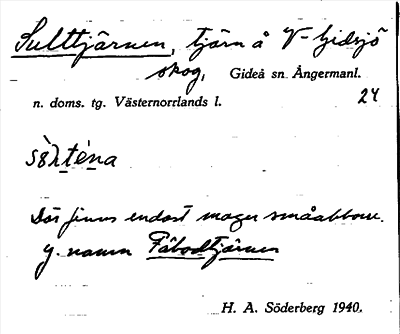 Sulttjärnen, tjärn å V-Gidsjö
skog, Gideå sn Ångermanl.
n. doms. tg. Västernorrlands l.
24
Där finns endast mager småabborre.
y. namn Fäbodtjärnen
H. A. Söderberg 1940.